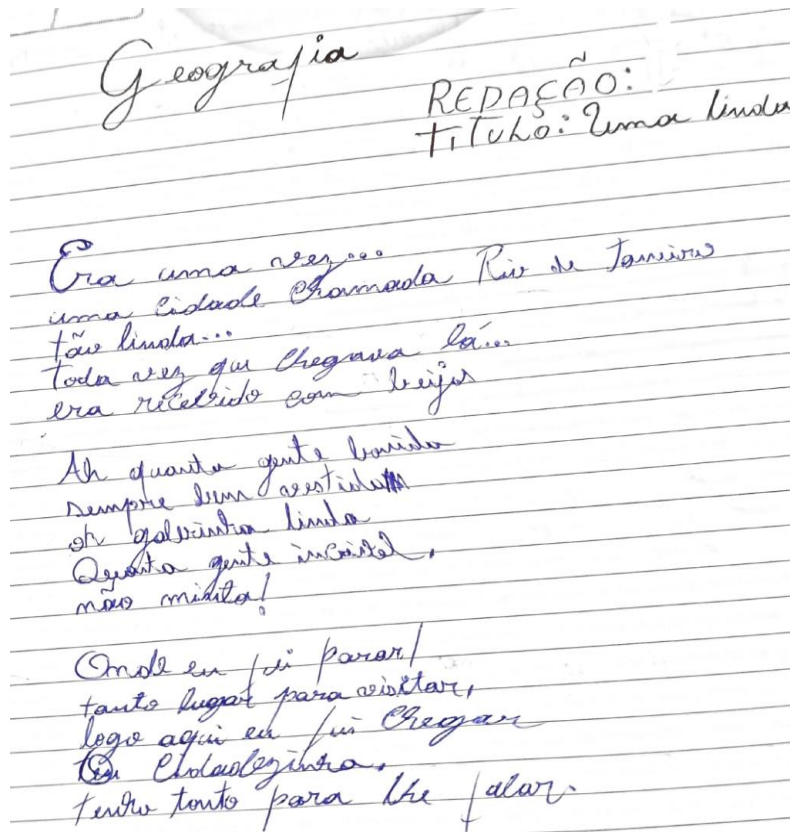 Geografia
REDAÇÃO:
TÍTULO: Uma linda
Era uma vez...
uma cidade chamada Rio de Janeiro
tão linda...
toda vez que chegava lá...
era recebido com beijos
Ah quanta gente bonita
sempre bem vestida
oh galerinha linda
Quanta gente incrível,
não minto!
Onde eu fui parar!
tanto lugar para visitar,
logo aqui eu fui chegar
cidadezinha,
tenho tanto para lhe falar.